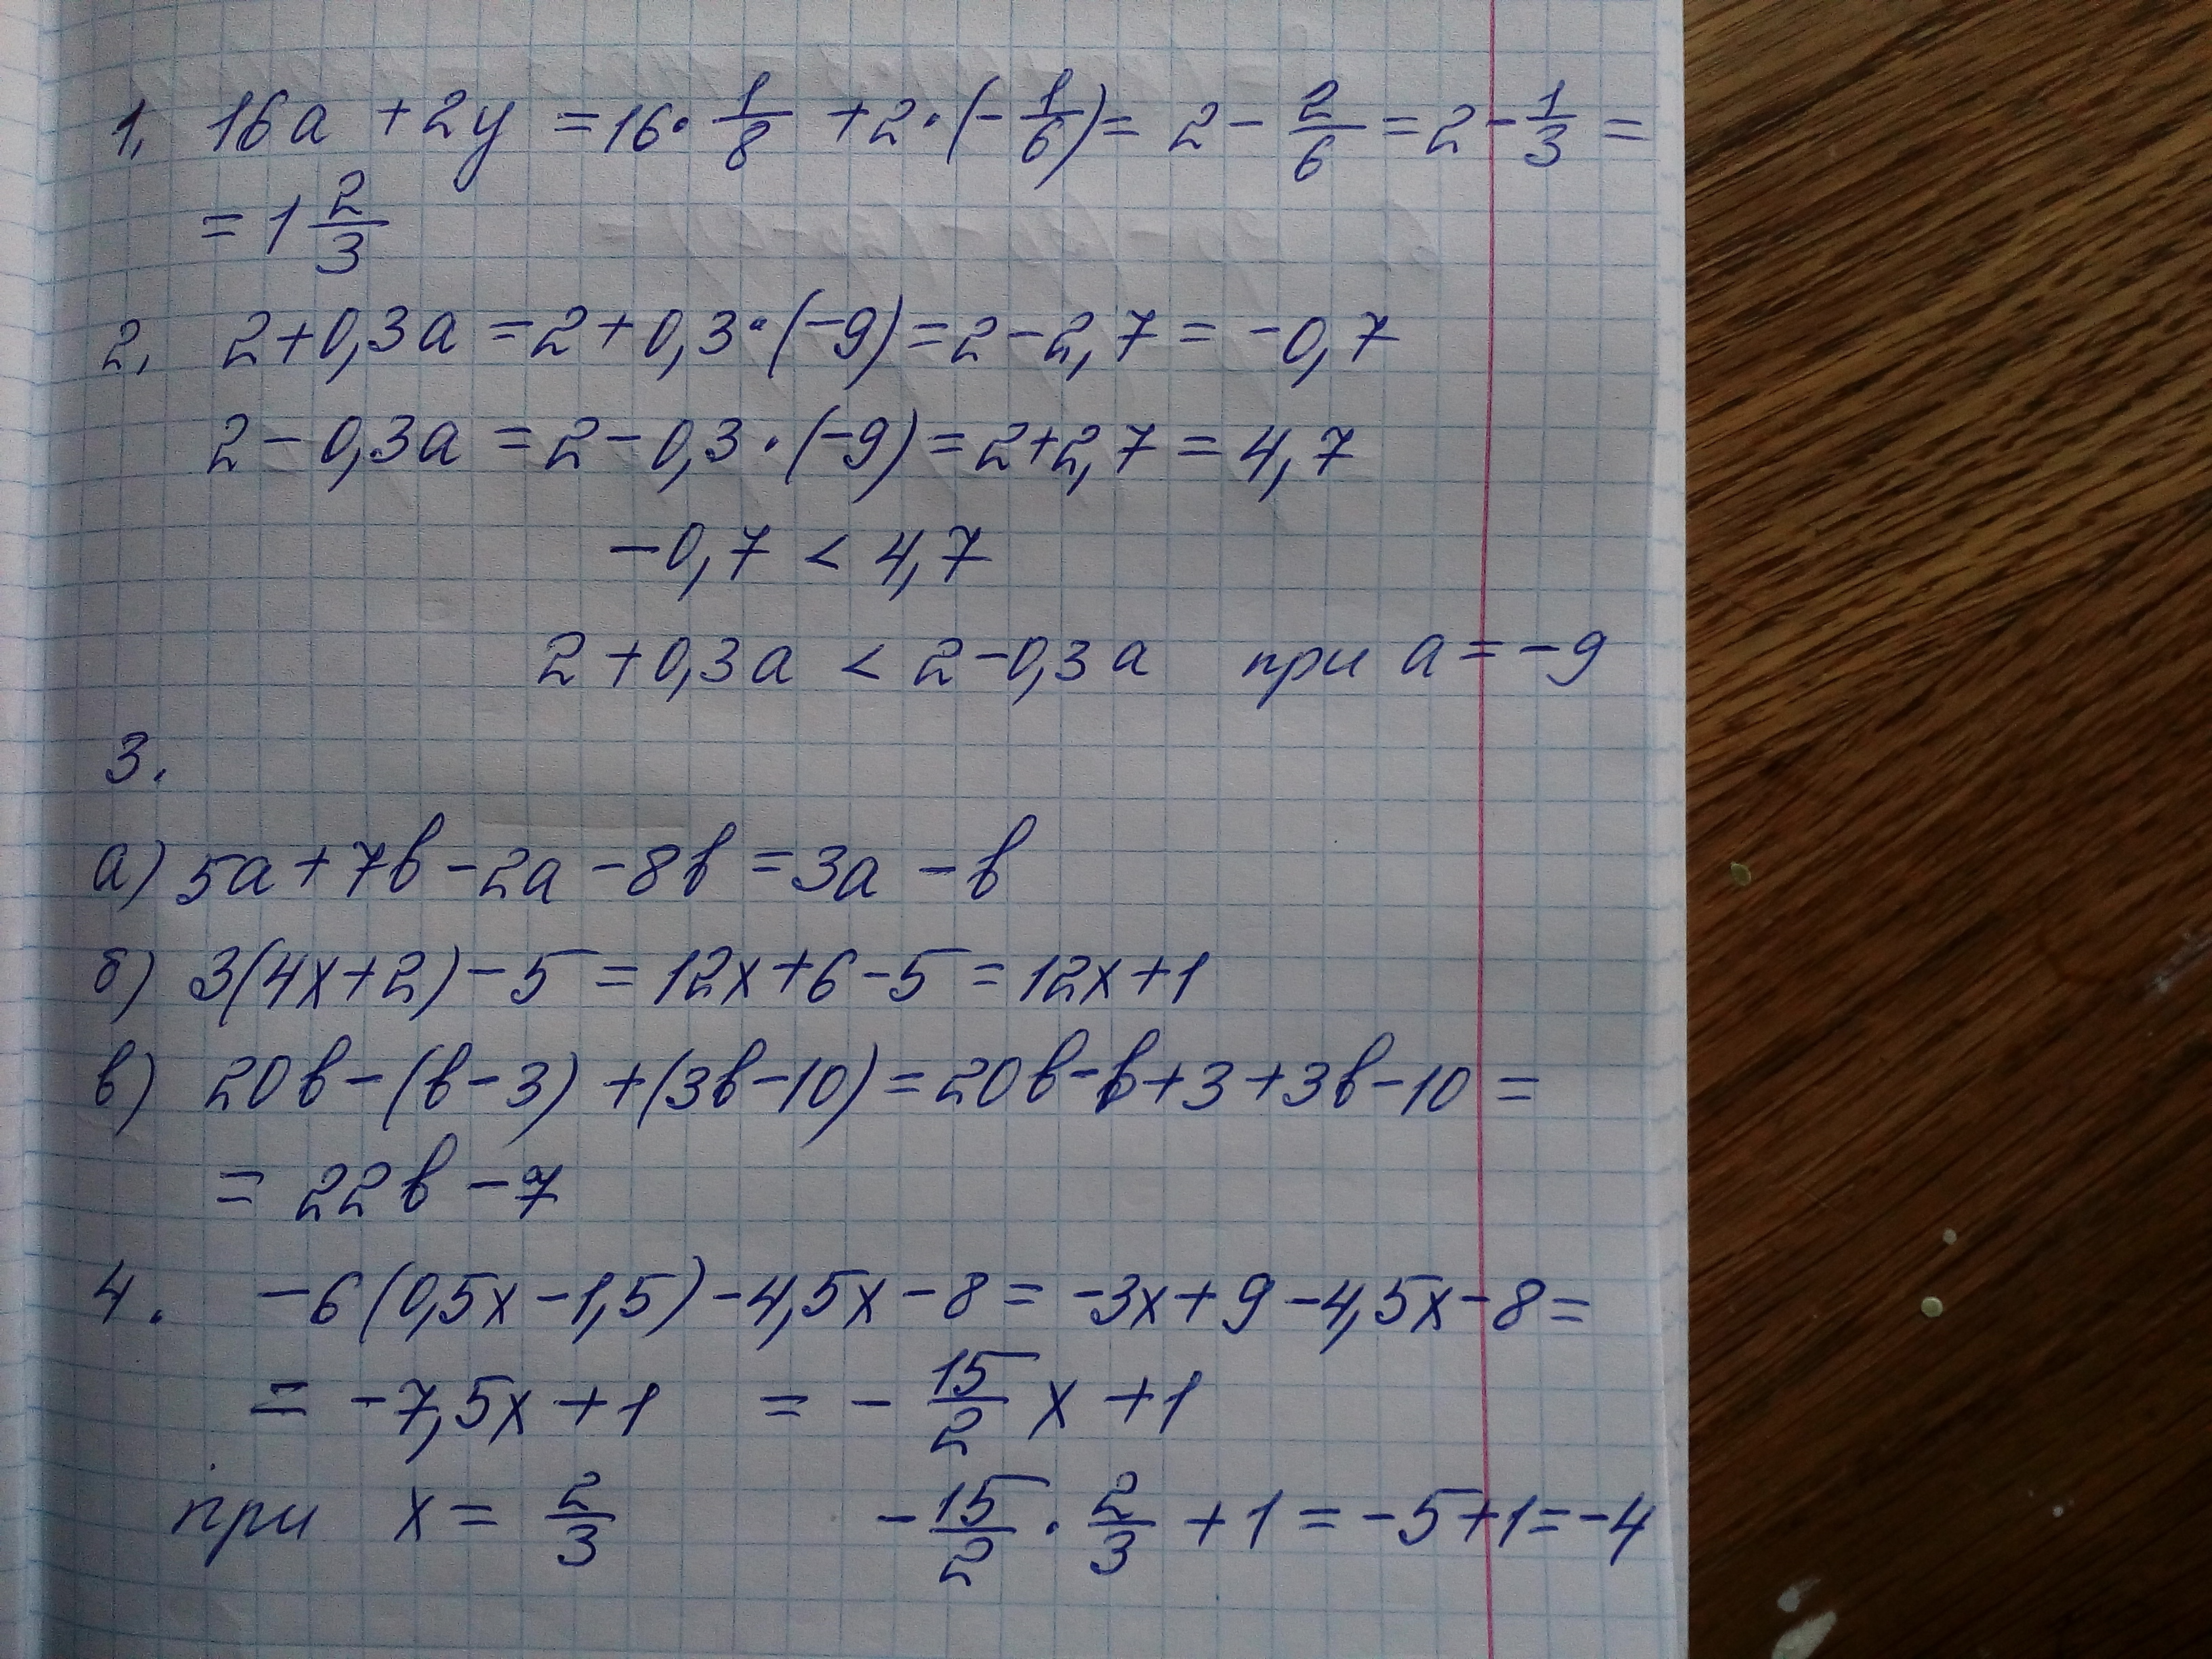 1. 16a + 2y = 16 · 1/8 + 2 · (-1/6) = 2 - 2/6 = 2 - 1/3 =
= 1 2/3
2. 2 + 0,3a = 2 + 0,3 · (-9) = 2 - 2,7 = -0,7
2 - 0,3a = 2 - 0,3 · (-9) = 2 + 2,7 = 4,7
-0,7 < 4,7
2 + 0,3a < 2 - 0,3a при a = -9
3.
а) 5a + 7b - 2a - 8b = 3a - b
б) 3(4x + 2) - 5 = 12x + 6 - 5 = 12x + 1
в) 20b - (b - 3) + (3b - 10) = 20b - b + 3 + 3b - 10 =
= 22b - 7
4. -6(0,5x - 1,5) - 4,5x - 8 = -3x + 9 - 4,5x - 8 =
= -7,5x + 1 = - 15/2 x + 1
при x = 2/3 - 15/2 · 2/3 + 1 = -5 + 1 = -4